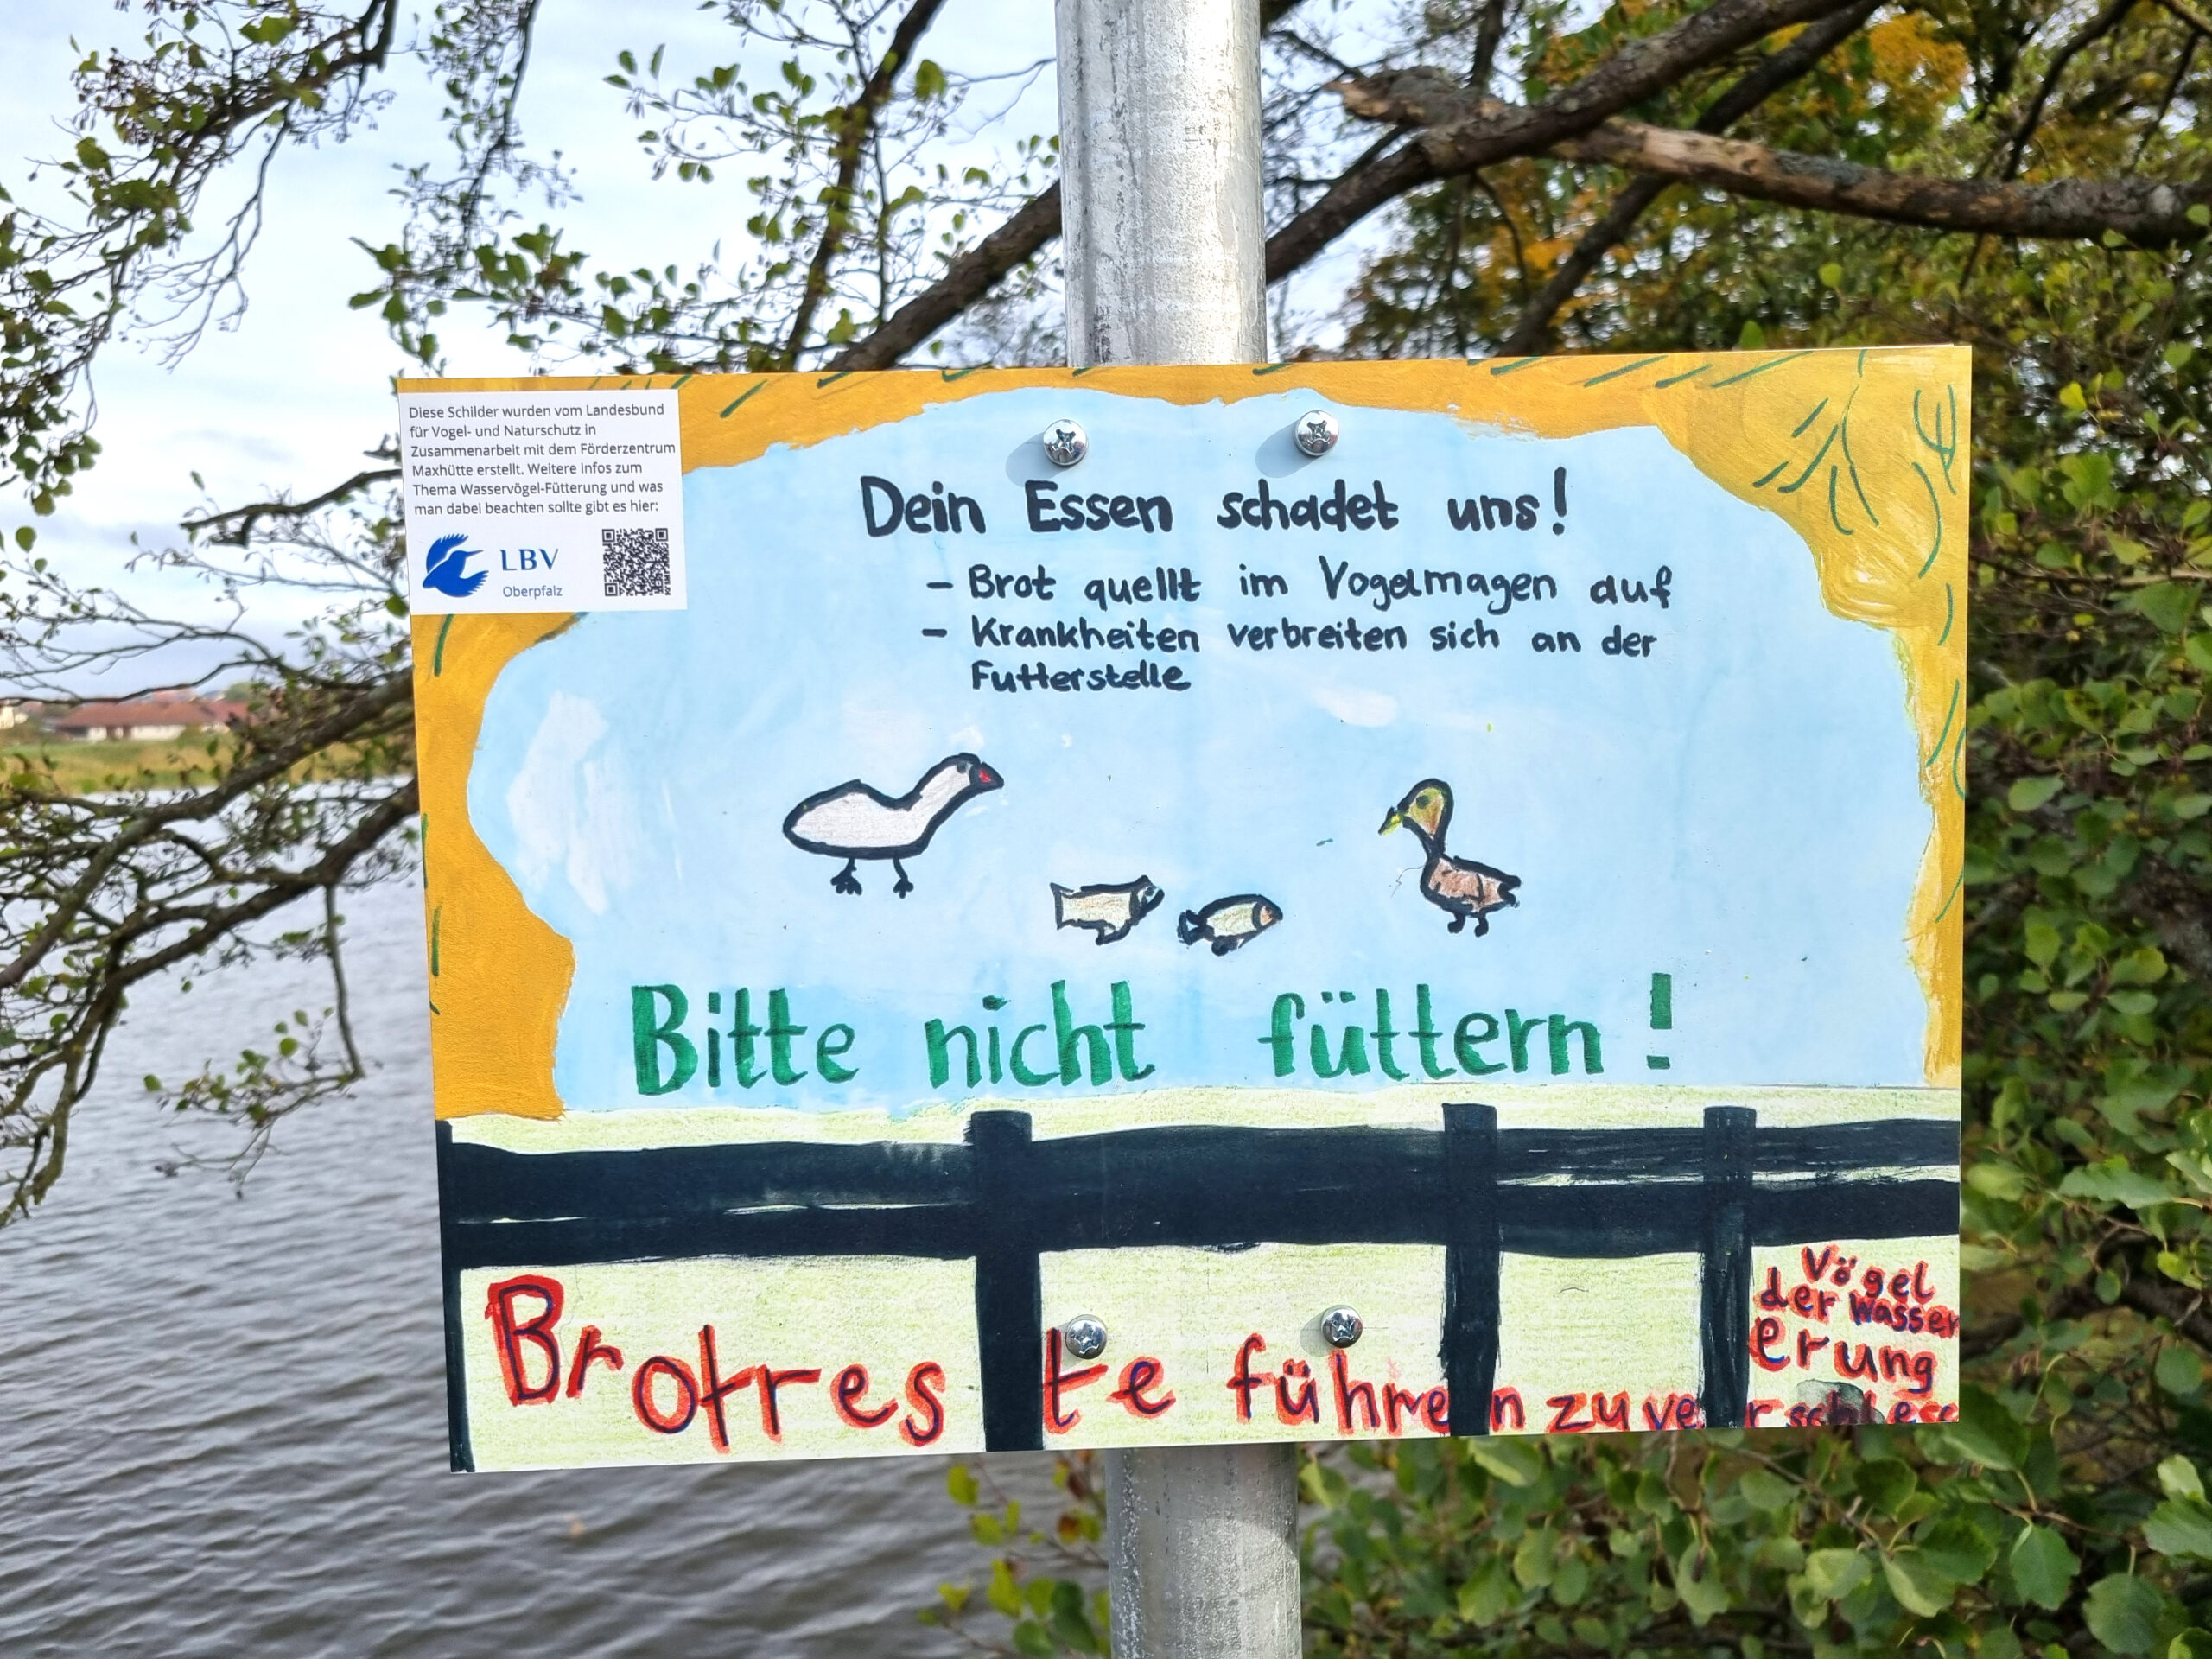 Diese Schilder wurden vom Landesbund
für Vogel- und Naturschutz in
Zusammenarbeit mit dem Förderzentrum
Maxhütte erstellt. Weitere Infos zum
Thema Wasservögel-Fütterung und was
man dabei beachten sollte gibt es hier:
LBV
Oberpfalz
Dein Essen schadet uns!
- Brot quellt im Vogelmagen auf
- Krankheiten verbreiten sich an der
Futterstelle
Bitte nicht füttern!
Brotreste führen zu verschless
Vögel
der wasser
erung